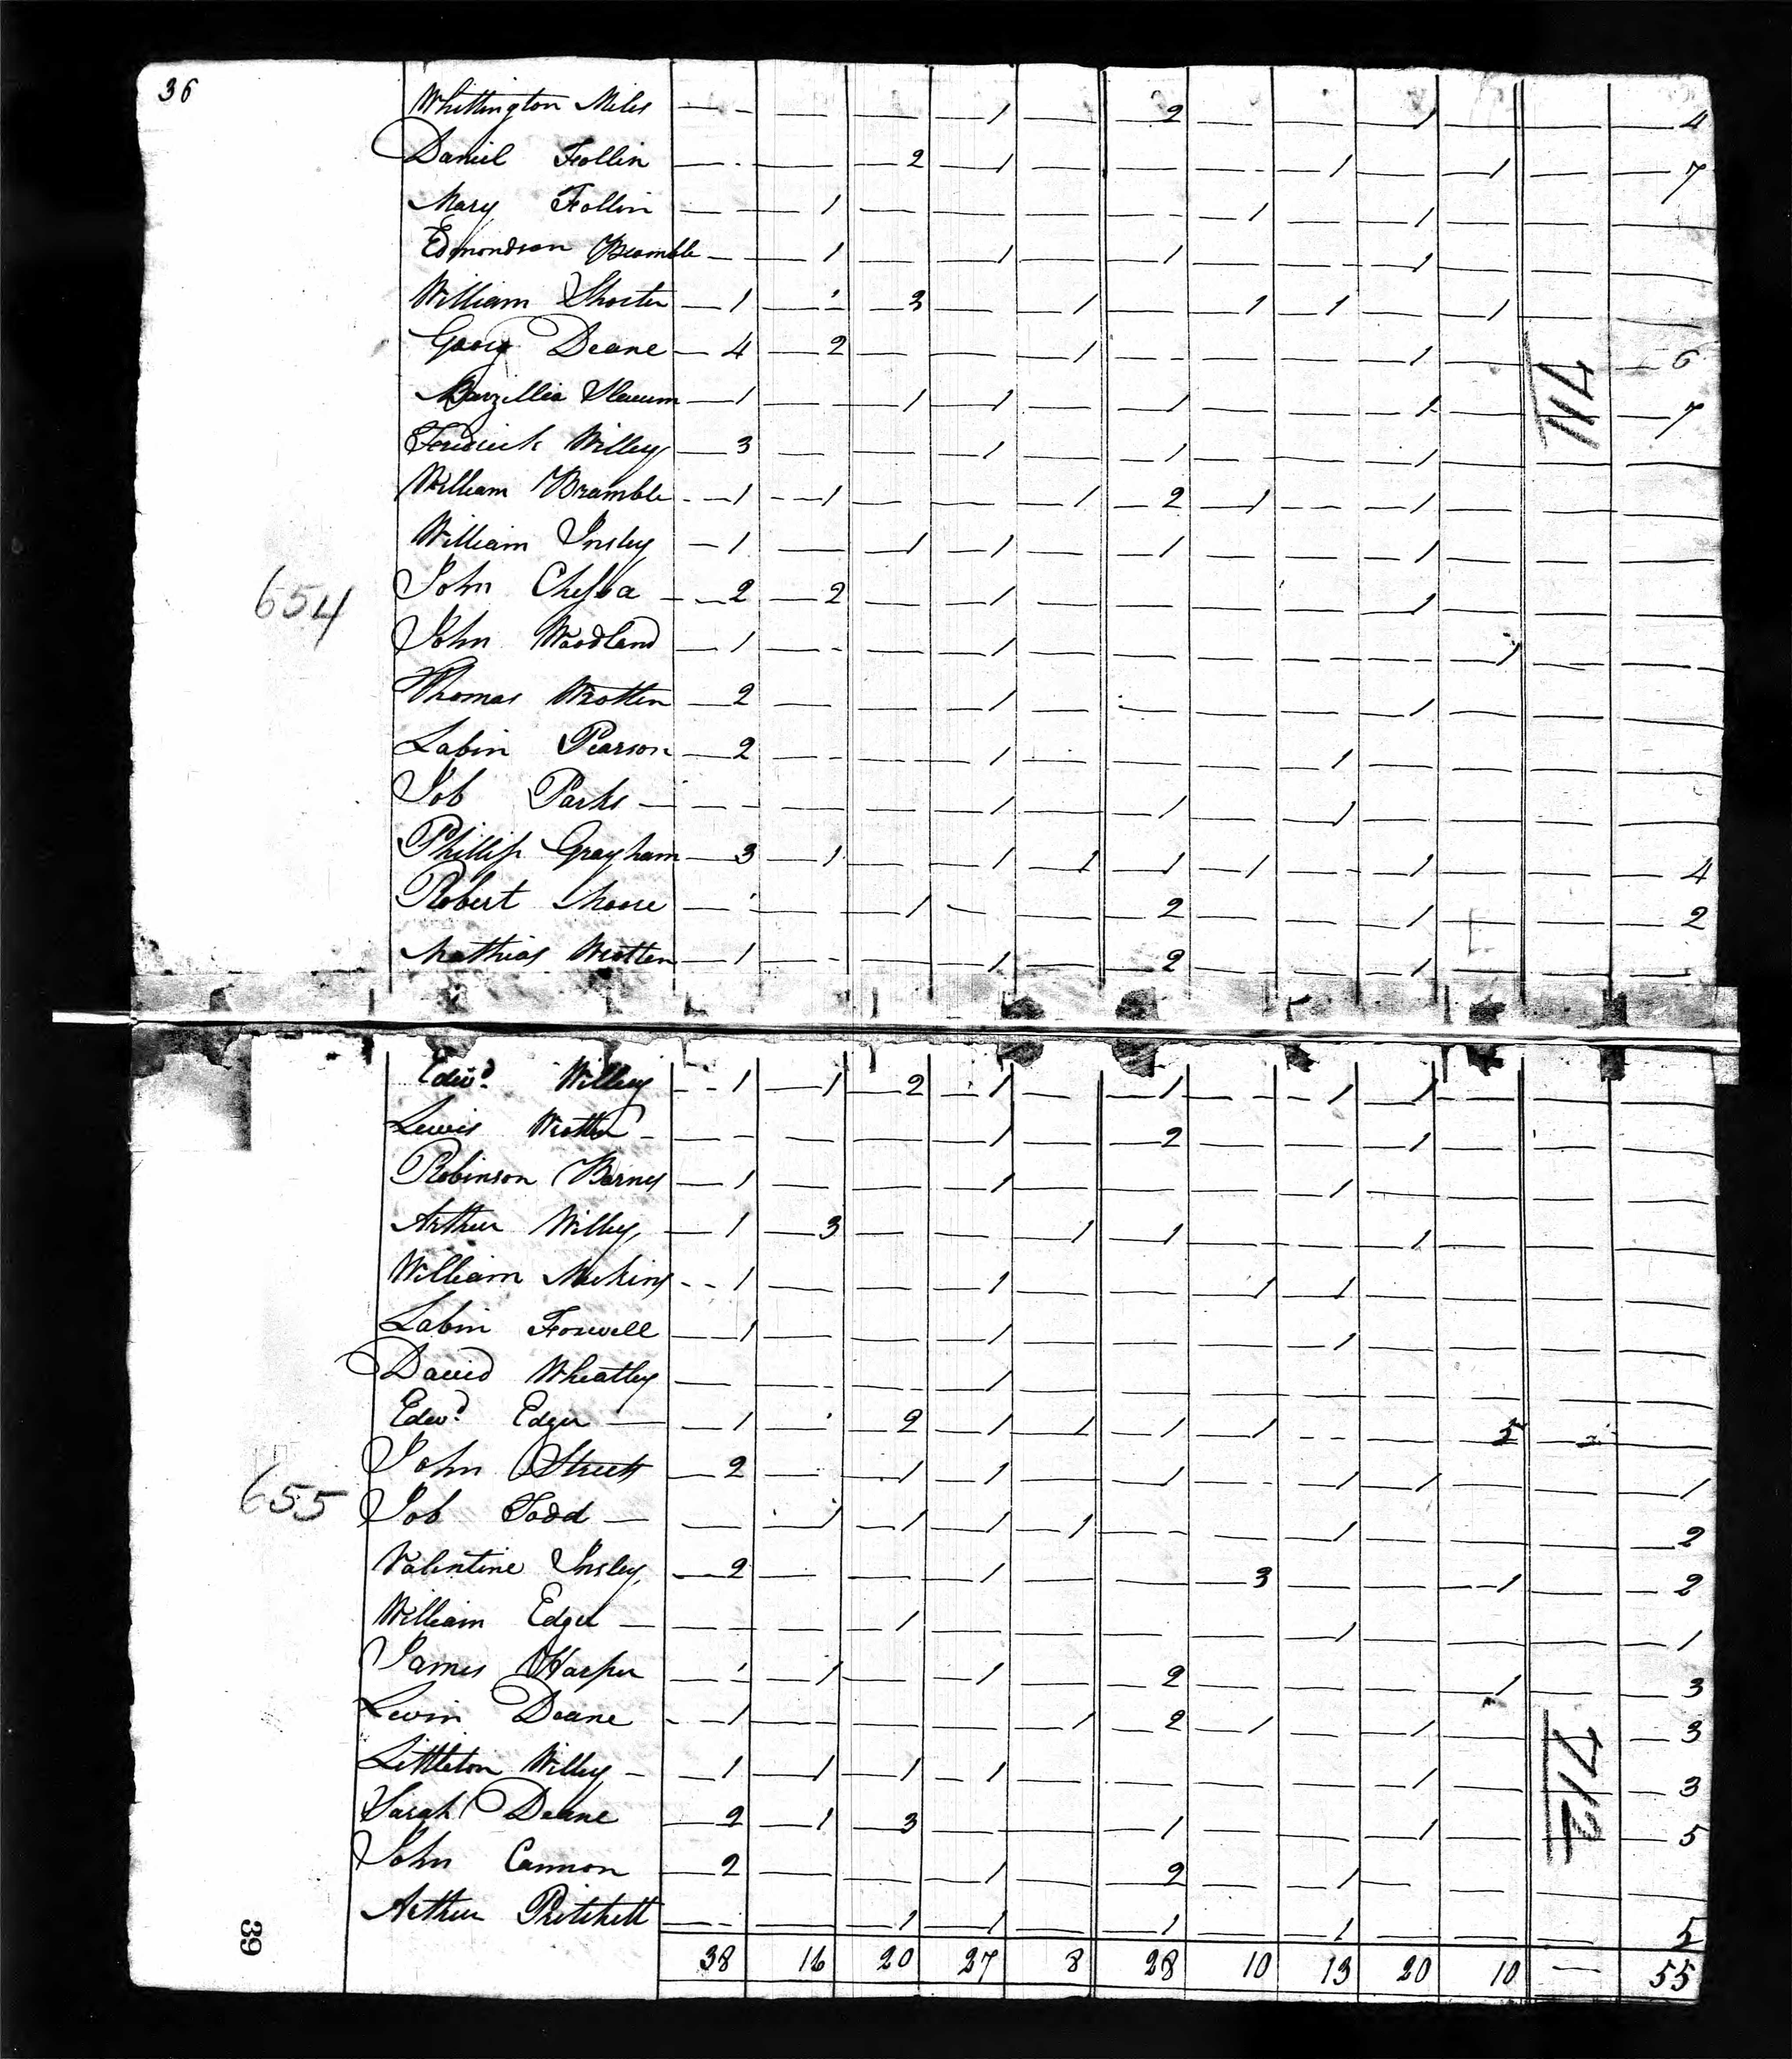 36
Whittington Miles — — — 1 — 2 — — 1 — — 4
Daniel Follin — — 2 1 — — — 1 — 1 — 7
Mary Follin — 1 — — — — 1 — 1 — — —
Edmondson Bramble — 1 — 1 — 1 — — 1 — — —
William Shorter 1 — 3 — 1 — 1 1 — 1 — —
Deane 4 2 — — 1 — — — 1 — — 6
Barzillia Slacum 1 — 1 1 — 1 — — 1 — — 7
Willey 3 — — 1 — 1 — — 1 — — —
William Bramble 1 1 — — 1 2 1 — 1 — — —
William Insley 1 — 1 1 — 1 — — 1 — — —
John 2 2 — 1 — — — — 1 — — —
John Woodland 1 — — 1 — — — — — 1 — —
Thomas Wrotten 2 — — 1 — — — — 1 — — —
Labin Pearson 2 — — 1 — — — 1 — — — —
Job Parks — — — 1 — 1 — 1 — — — —
Phillip Grayham 3 1 — 1 1 1 1 — 1 — — 4
Robert — — 1 — — 2 — — 1 — — 2
Mathias Wrotten 1 — — 1 — 2 — — 1 — — —
654
711
Edwd. Willey 1 1 2 1 — 1 — 1 1 — — —
Lewis — — — 1 — 2 — — 1 — — —
Robinson Barnes 1 — — 1 — — — 1 — — — —
Arthur Willey 1 3 — — 1 1 — — 1 — — —
William Mekins 1 — — 1 — — 1 1 — — — —
Labin Foxwell 1 — — 1 — — — 1 — — — —
David Wheatley — — — 1 — — — — — — — —
Edwd. Edger 1 — 2 1 1 1 1 — — 5 — —
John Streets 2 — 1 1 — 1 — 1 1 — — 1
Job Todd — 1 1 1 1 — — 1 — — — 2
Valentine Insley 2 — — 1 — — 3 — — 1 — 2
William Edger — — 1 — — — — 1 — — — 1
James Harper — 1 — 1 — 2 — — — 1 — 3
Levin Deane 1 — — — 1 2 1 — 1 — — 3
Littleton Willey 1 1 1 1 — — — — 1 — — 3
Sarah Deane 2 1 3 — — 1 — — 1 — — 5
John Cannon 2 — — 1 — 2 — 1 — — — —
Arthur Pritchett — — 1 1 — 1 — 1 — — — 5
38 16 20 27 8 28 10 13 20 10 — 55
655
712
39